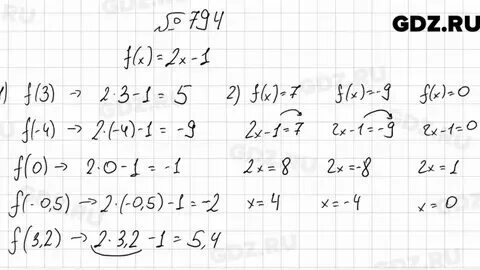 № 794
GDZ.RU
f(x)=2x-1
1) f(3) → 2·3-1=5
f(-4) → 2·(-4)-1=-9
f(0) → 2·0-1=-1
f(-0,5) → 2·(-0,5)-1=-2
f(3,2) → 2·3,2-1=5,4
2) f(x)=7 f(x)=-9 f(x)=0
2x-1=7 2x-1=-9 2x-1=0
2x=8 2x=-8 2x=1
x=4 x=-4 x=0
GDZ.RU